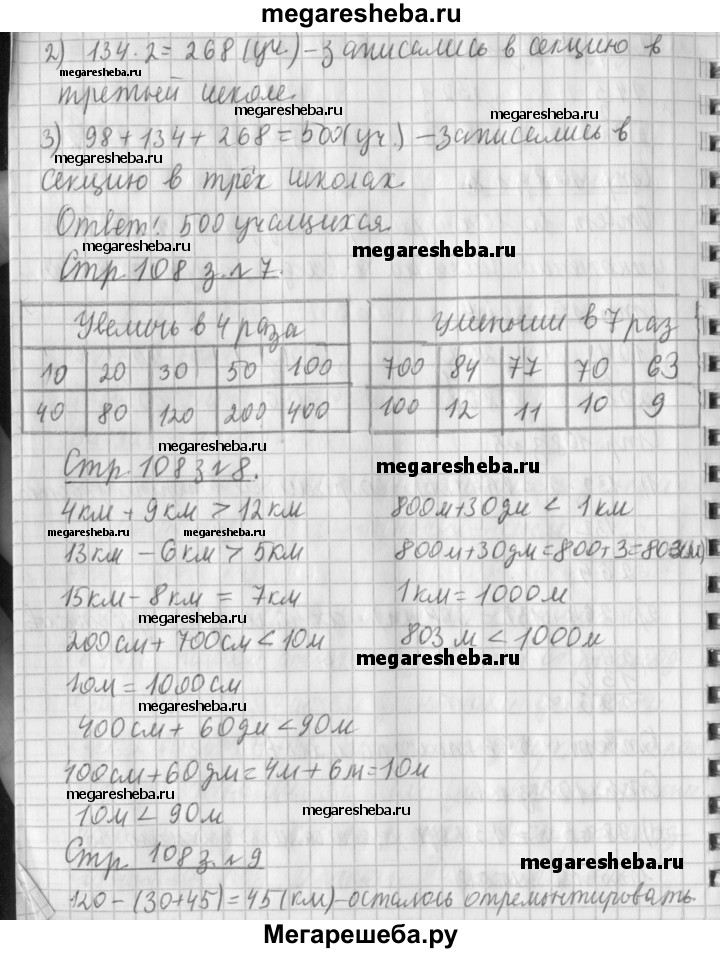 megaresheba.ru
2) 134·2=268(уч.)-записались в секцию в
megaresheba.ru
третьей школе.
megaresheba.ru
megaresheba.ru
3) 98+134+268=500(уч.)-записались в
megaresheba.ru
секцию в трёх школах.
Ответ: 500 учащихся.
megaresheba.ru
megaresheba.ru
Стр. 108 з.№7.
Увеличь в 4 раза
10 20 30 50 100
40 80 120 200 400
Уменьши в 7 раз
700 84 77 70 63
100 12 11 10 9
megaresheba.ru
Стр. 108 з№8.
megaresheba.ru
4км + 9км > 12км
megaresheba.ru
megaresheba.ru
13км - 6км > 5км
15км - 8км = 7км
megaresheba.ru
200см + 700см < 10м
10м = 1000см
megaresheba.ru
400см + 60дм < 90м
400см+60дм=4м+6м=10м
megaresheba.ru
10м < 90м
800м+30дм < 1км
800м+30дм=800+3=803(м)
1км=1000м
803м<1000м
megaresheba.ru
megaresheba.ru
Стр. 108 з.№9
megaresheba.ru
120-(30+45)=45(км)-осталось отремонтировать.
Мегарешеба.ру